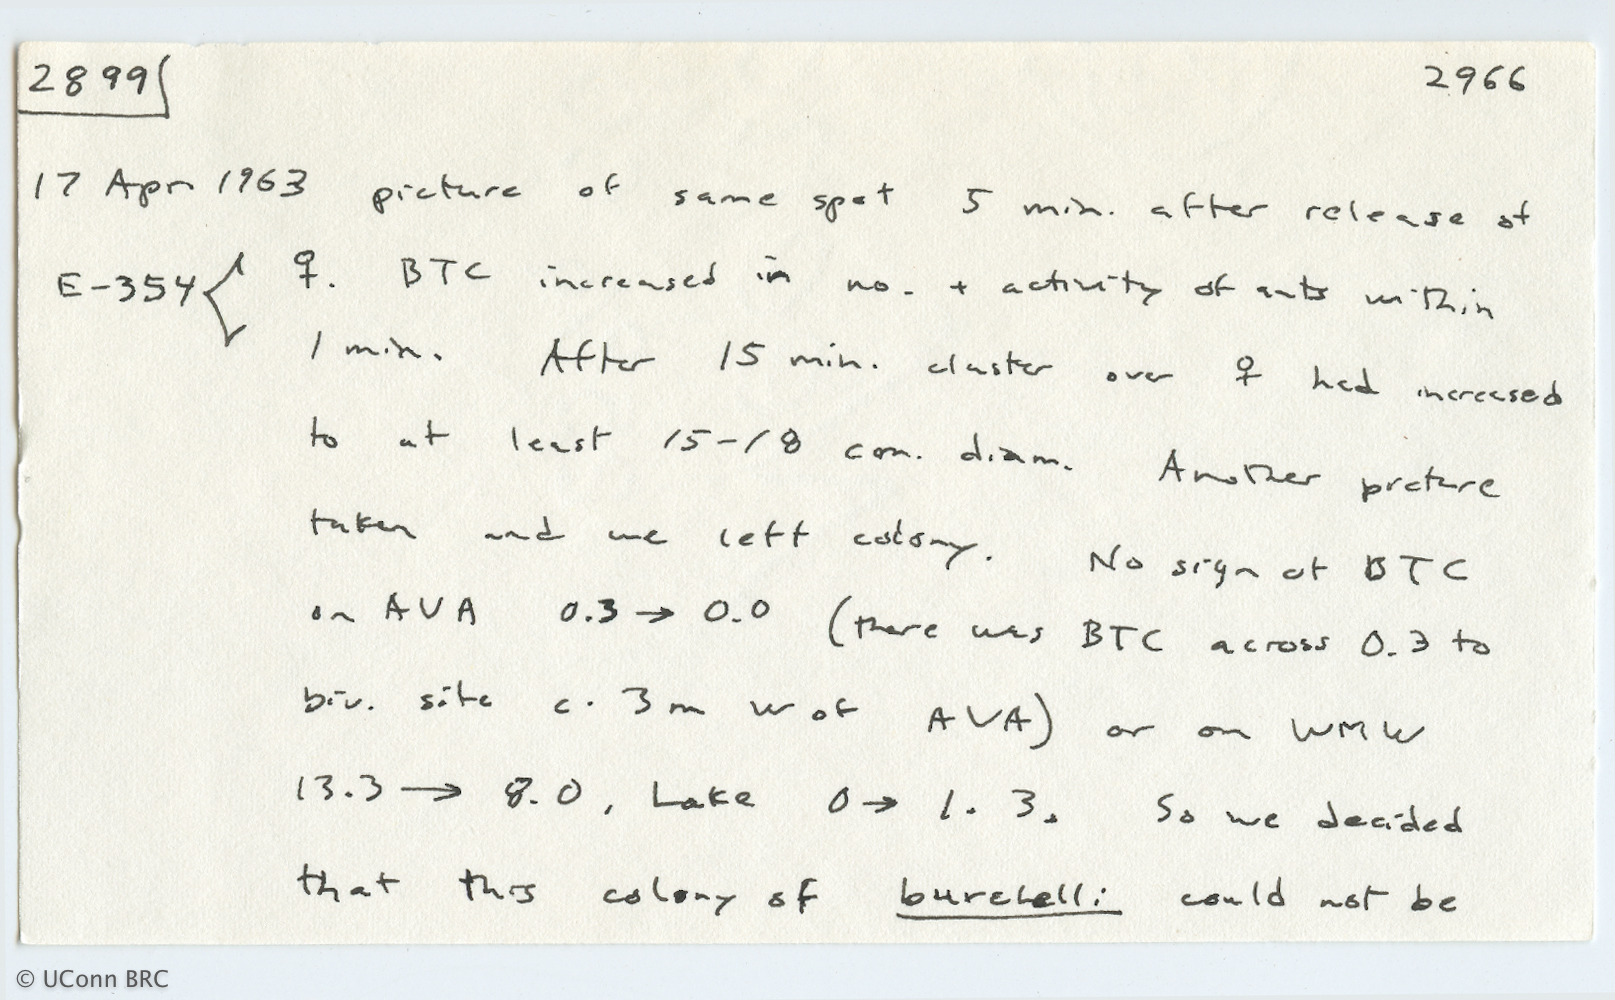 2899 2966
17 Apr 1963 picture of same spot 5 min. after release of
E-354 ♀. BTC increased in no. + activity of ants within
1 min. After 15 min. cluster over ♀ had increased
to at least 15-18 cm. diam. Another picture
taken and we left colony. No sign of BTC
on AVA 0.3 → 0.0 (there was BTC across 0.3 to
biv. site c. 3 m W of AVA) or on WMW
13.3 → 8.0, Lake 0 → 1.3. So we decided
that this colony of burchelli could not be
© UConn BRC